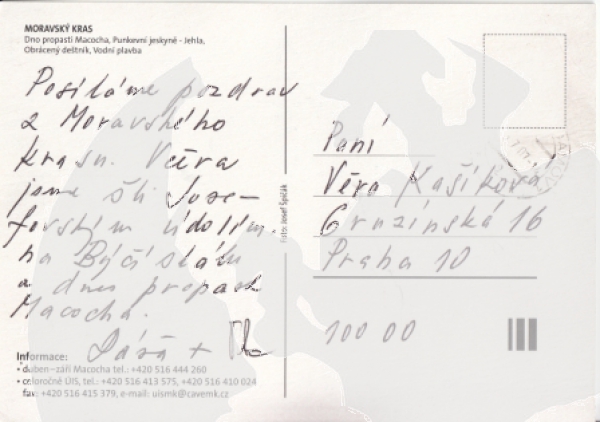 MORAVSKÝ KRAS
Dno propasti Macocha, Punkevní jeskyně - Jehla,
Obrácený deštník, Vodní plavba
Posíláme pozdrav
z Moravského
krasu. Včera
jsme šli Jose-
fovským údolím
na Býčí skálu
a dnes propast
Macocha.
Dáša +
Informace:
• duben–září Macocha tel.: +420 516 444 260
• celoročně ÚIS, tel.: +420 516 413 575, +420 516 410 024
fax: +420 516 415 379, e-mail: uismk@cavemk.cz
Foto: Josef Špičák
Paní
Věra Kašíková
Gruzínská 16
Praha 10
100 00